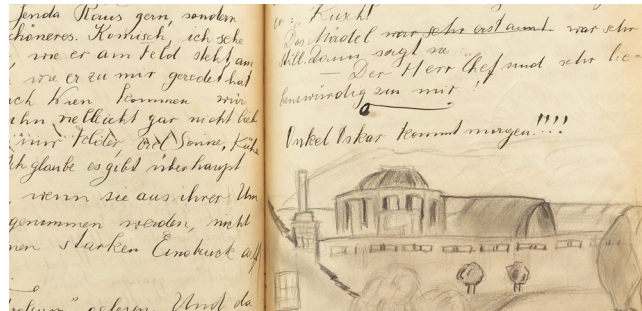 Jenda Kaus gern, sondern
schöneres. Komisch, ich sehe
, wie er am Feld steht, am
, wie er zu mir geredet hat
ch Wien kommen wir
ihn vielleicht gar nicht lieb
nur Felder, Sonne, Kühe
Ich glaube es gibt überhaupt
, wenn sie aus ihrer Um
genommen werden, nicht
nen starken Eindruck auf
gelesen. Und da
Kuscht
Das Mädel war sehr erstaunt war sehr
still. Dann sagt sie
— Der Herr Chef sind sehr lie-
benswürdig zu mir!
Onkel Oskar kommt morgen!!!!